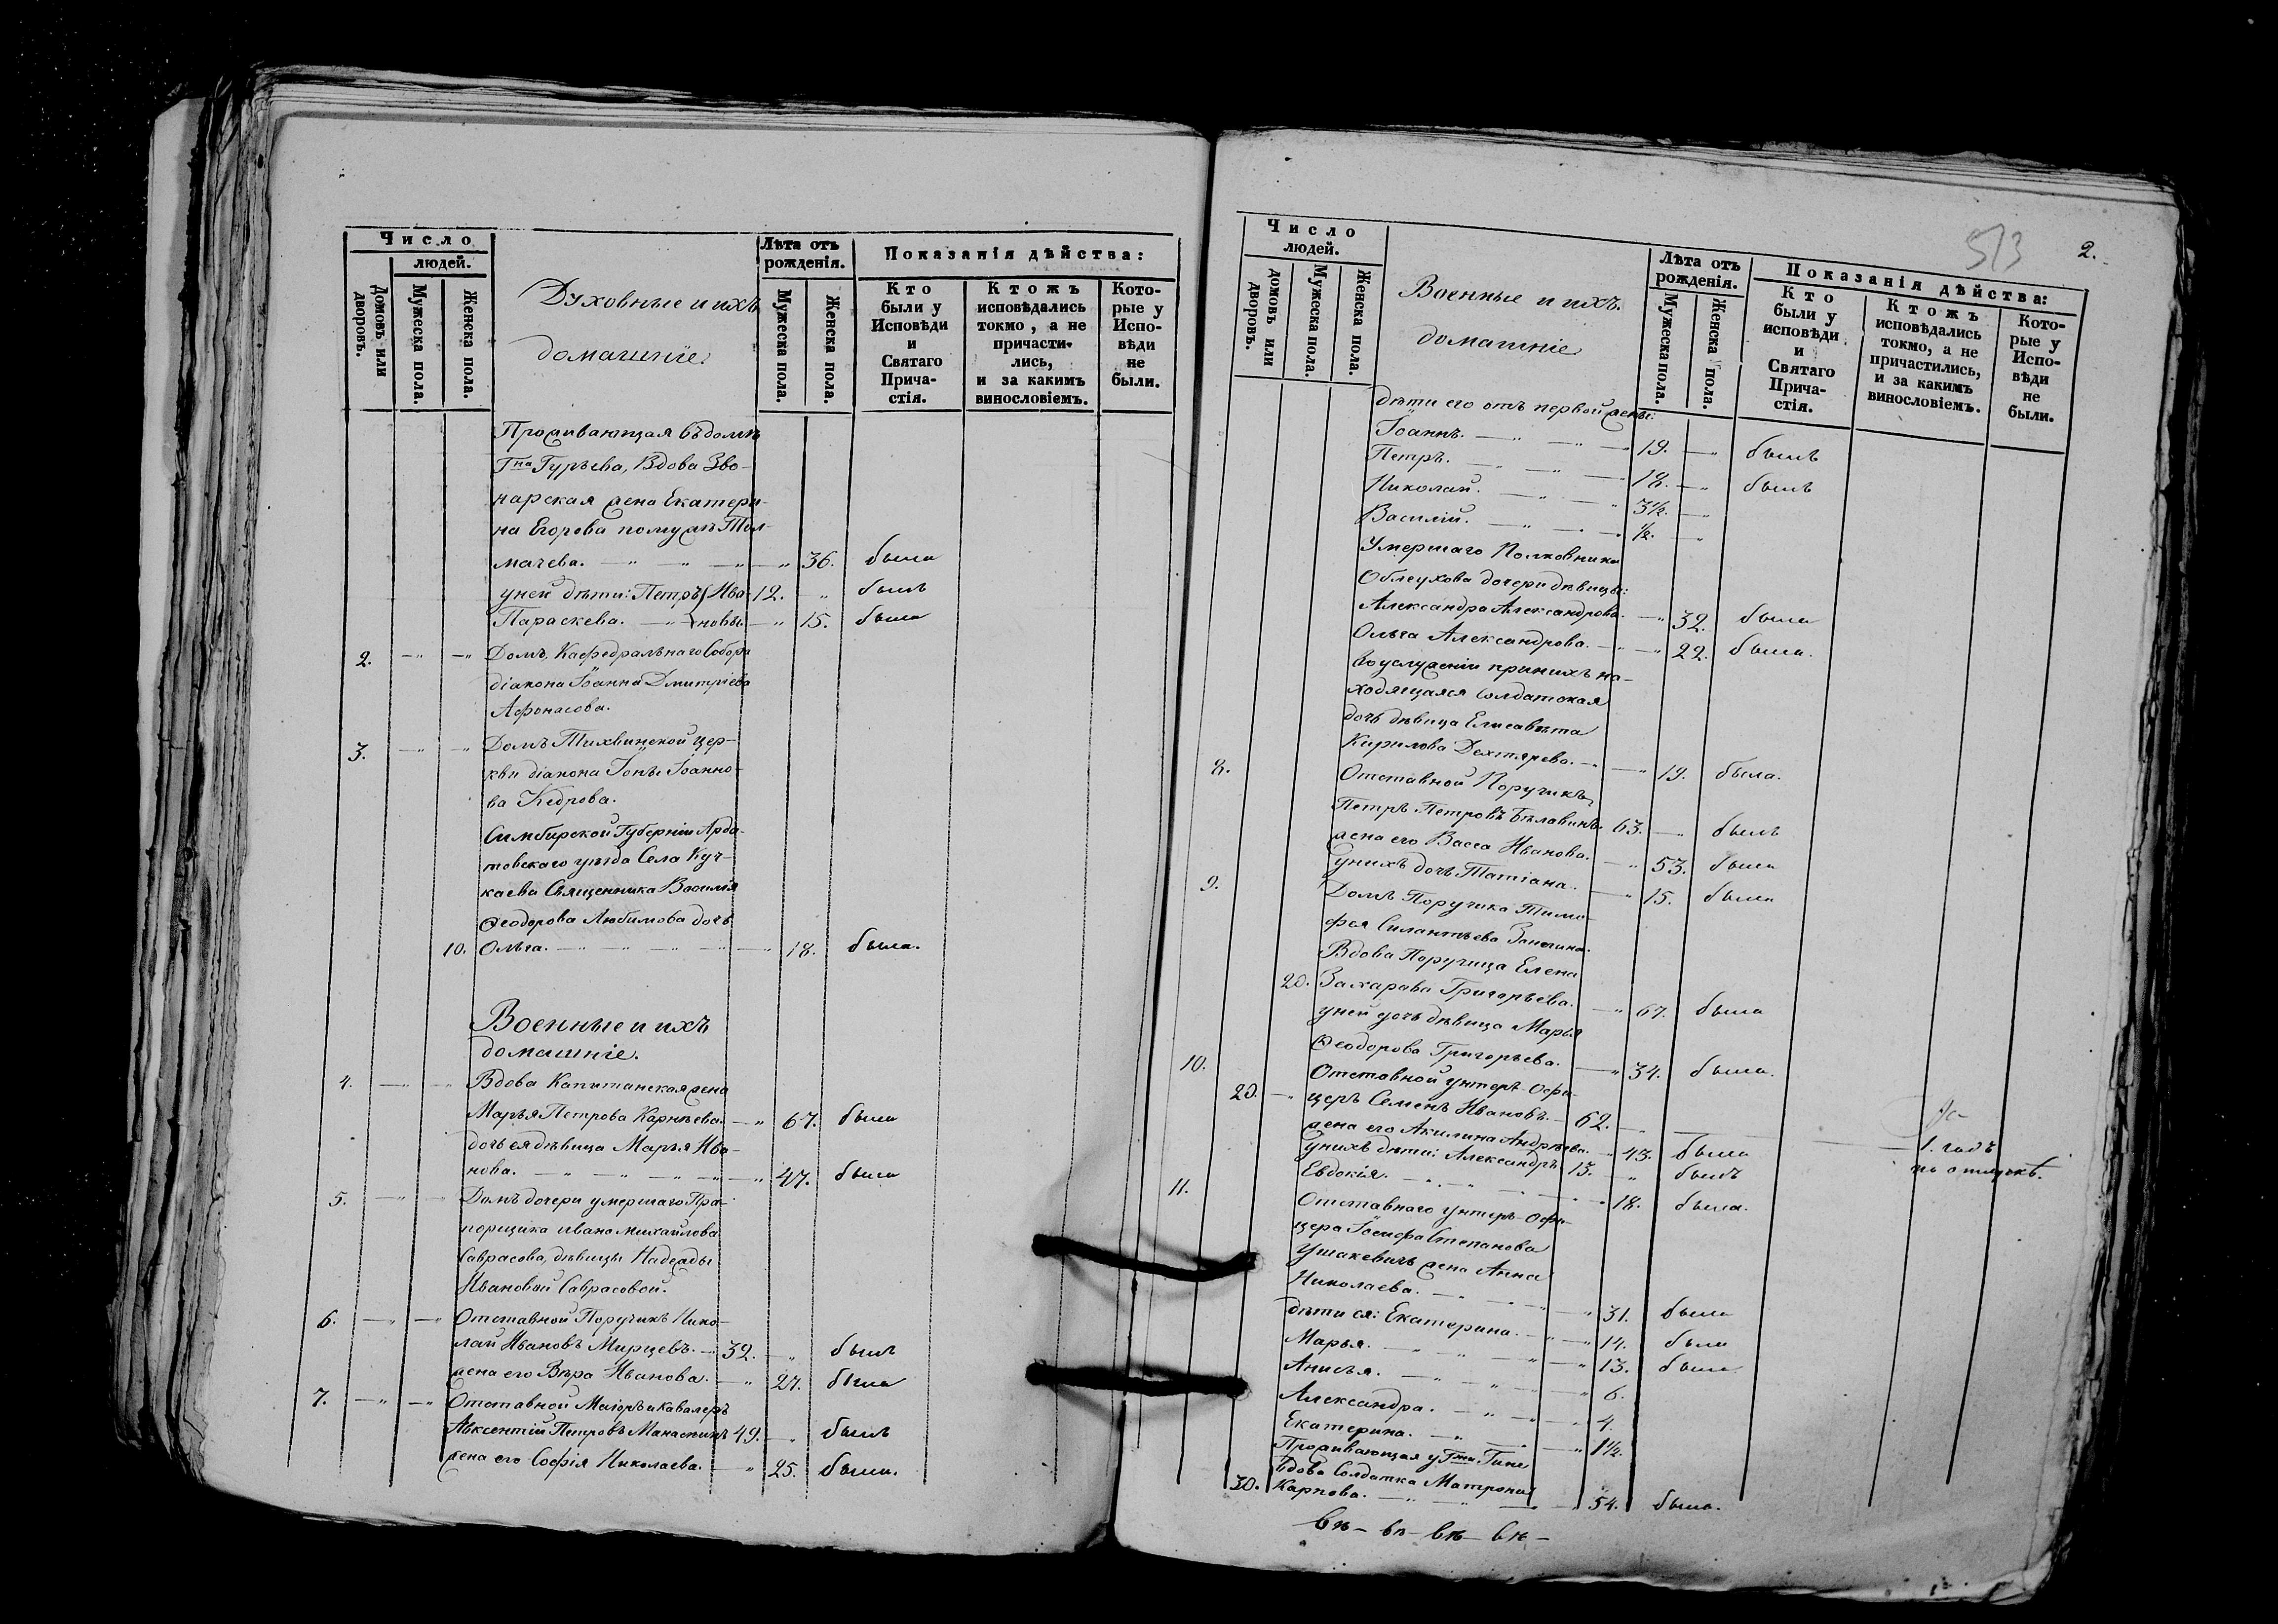 Число
людей.
Домовъ или дворовъ.
Мужеска пола.
Женска пола.
Духовные и ихъ
домашніе.
Лѣта отъ
рожденія.
Мужеска пола.
Женска пола.
Показанія дѣйства:
Кто
были у
Исповѣди
и
Святаго
Прича-
стія.
Ктожъ
исповѣдались
токмо, а не
причасти-
лись,
и за какимъ
винословіемъ.
Кото-
рые у
Испо-
вѣди
не
были.
Проживающая въ домѣ
Гна Гурьева, Вдова Зво-
нарская жена Екатери-
на Егорова по мужѣ Тол-
мачева. 36. была
у ней дѣти: Петръ Ива- 12. былъ
Параскева. новы. 15. была
2. Домъ Кафедральнаго Собора
діакона Іоанна Дмитріева
Афонасова.
3. Домъ Тихвинской цер-
кви діакона Іоны Іоанно-
ва Кедрова.
Симбирской Губерніи Арда-
товскаго уѣзда Села Куч-
каева Священника Василія
Ѳеодорова Любимова дочь
10. Ольга. 18. была.
Военные и ихъ
домашніе.
4. Вдова Капитанская жена
Марья Петрова Карнѣева. 67. была
дочь ея дѣвица Марья Ива-
нова. 47. была
5. Домъ дочери умершаго Пра-
порщика Ивана Михайлова
Саврасова, дѣвицы Надежды
Ивановой Саврасовой.
6. Отставной Поручикъ Нико-
лай Ивановъ Мирцевъ. 32. былъ
жена его Вѣра Иванова. 27. была
7. Отставной Маіоръ и кавалеръ
Авксентій Петровъ 49. былъ
жена его Софія Николаева. 25. была.
513
2.
Число
людей.
домовъ или дворовъ.
Мужеска пола.
Женска пола.
Военные и ихъ
домашніе
Лѣта отъ
рожденія.
Мужеска пола.
Женска пола.
Показанія дѣйства:
Кто
были у
исповѣди
и
Святаго
Прича-
стія.
Ктожъ
исповѣдались
токмо, а не
причастились,
и за какимъ
винословіемъ.
Кото-
рые у
Испо-
вѣди
не
были.
дѣти его отъ первой жены:
Іоаннъ. 19. былъ
Петръ. 18. былъ
Николай. 3½.
Василій. ½.
Умершаго Полковника
Облеухова дочери дѣвицы:
Александра Александрова. 32. была
Ольга Александрова. 22. была.
Во услуженіи при нихъ на-
ходящаяся Солдатская
дочь дѣвица Елисавета
Кирилова Дехтярева. 19. была.
8. Отставной Поручикъ
Петръ Петровъ Бѣлавинъ. 63. былъ
жена его Васса Иванова. 53. была
у нихъ дочь Татіана. 15. была
9. Домъ Поручика Тимо-
фея Силантьева
Вдова Поручица Елена
20. Захарова Григорьева. 67. была
у ней дочь дѣвица Марья
Ѳеодорова Григорьева. 34. была.
10. Отставной унтеръ-офи-
20. церъ Семенъ Ивановъ. 62. 1. годъ
жена его Акилина Андреева. 43. была по отлучкѣ.
У нихъ дѣти: Александръ. 13. былъ
Евдокія. 18. была.
11. Отставнаго унтеръ-офи-
цера Іосифа Степанова
Ушакевичъ жена Анна
Николаева. 31. была
дѣти ея: Екатерина. 14. была
Марья. 13. была
Анисья. 6.
Александра. 4.
Екатерина. 1½.
Проживающая у Гжи
Вдова Солдатка Матрона
30. Карпова. 54. была.